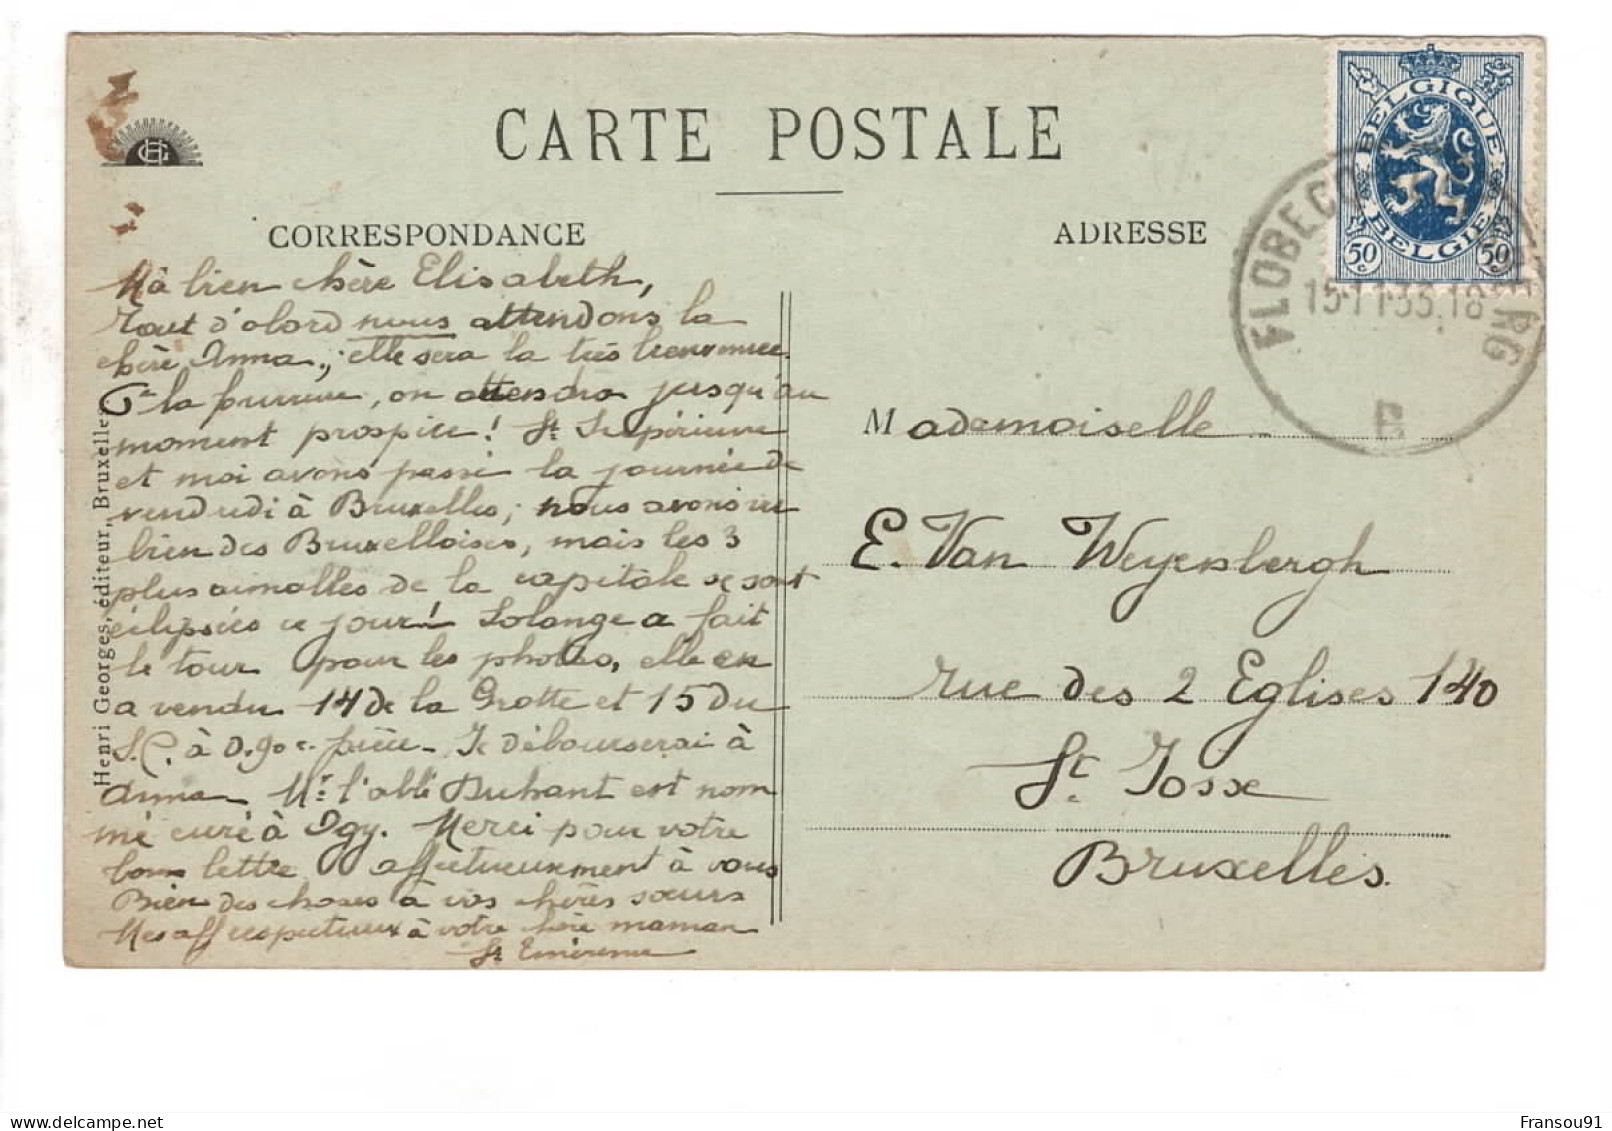 CARTE POSTALE
CORRESPONDANCE
ADRESSE
BELGIQUE
BELGIE
50 c 50 c
FLOBECQ
15·11·35.18
B
Henri Georges, éditeur, Bruxelles.
Ma bien chère Elisabeth,
Tout d'abord nous attendons la
chère Anna, elle sera la très bienvenue.
Pr la , on attendra jusqu'au
moment propice! Sr Supérieure
et moi avons passé la journée de
vendredi à Bruxelles; nous avons vu
bien des Bruxelloises, mais les 3
plus aimables de la capitale se sont
éclipsées ce jour! Solange a fait
le tour pour les photos, elle en
a vendu 14 de la Grotte et 15 du
S.C. à 0.90 c. pièce - Je débourserai à
Anna. Mr l'abbé Duhant est nom
mé curé à Ogy. Merci pour votre
bonne lettre affectueusement à vous
Bien des choses à vos chères sœurs
Mes aff respectueux à votre chère maman
Sr Emérence
Mademoiselle
E. Van Weyenbergh
rue des 2 Eglises 140
St Josse
Bruxelles.
Fransou91